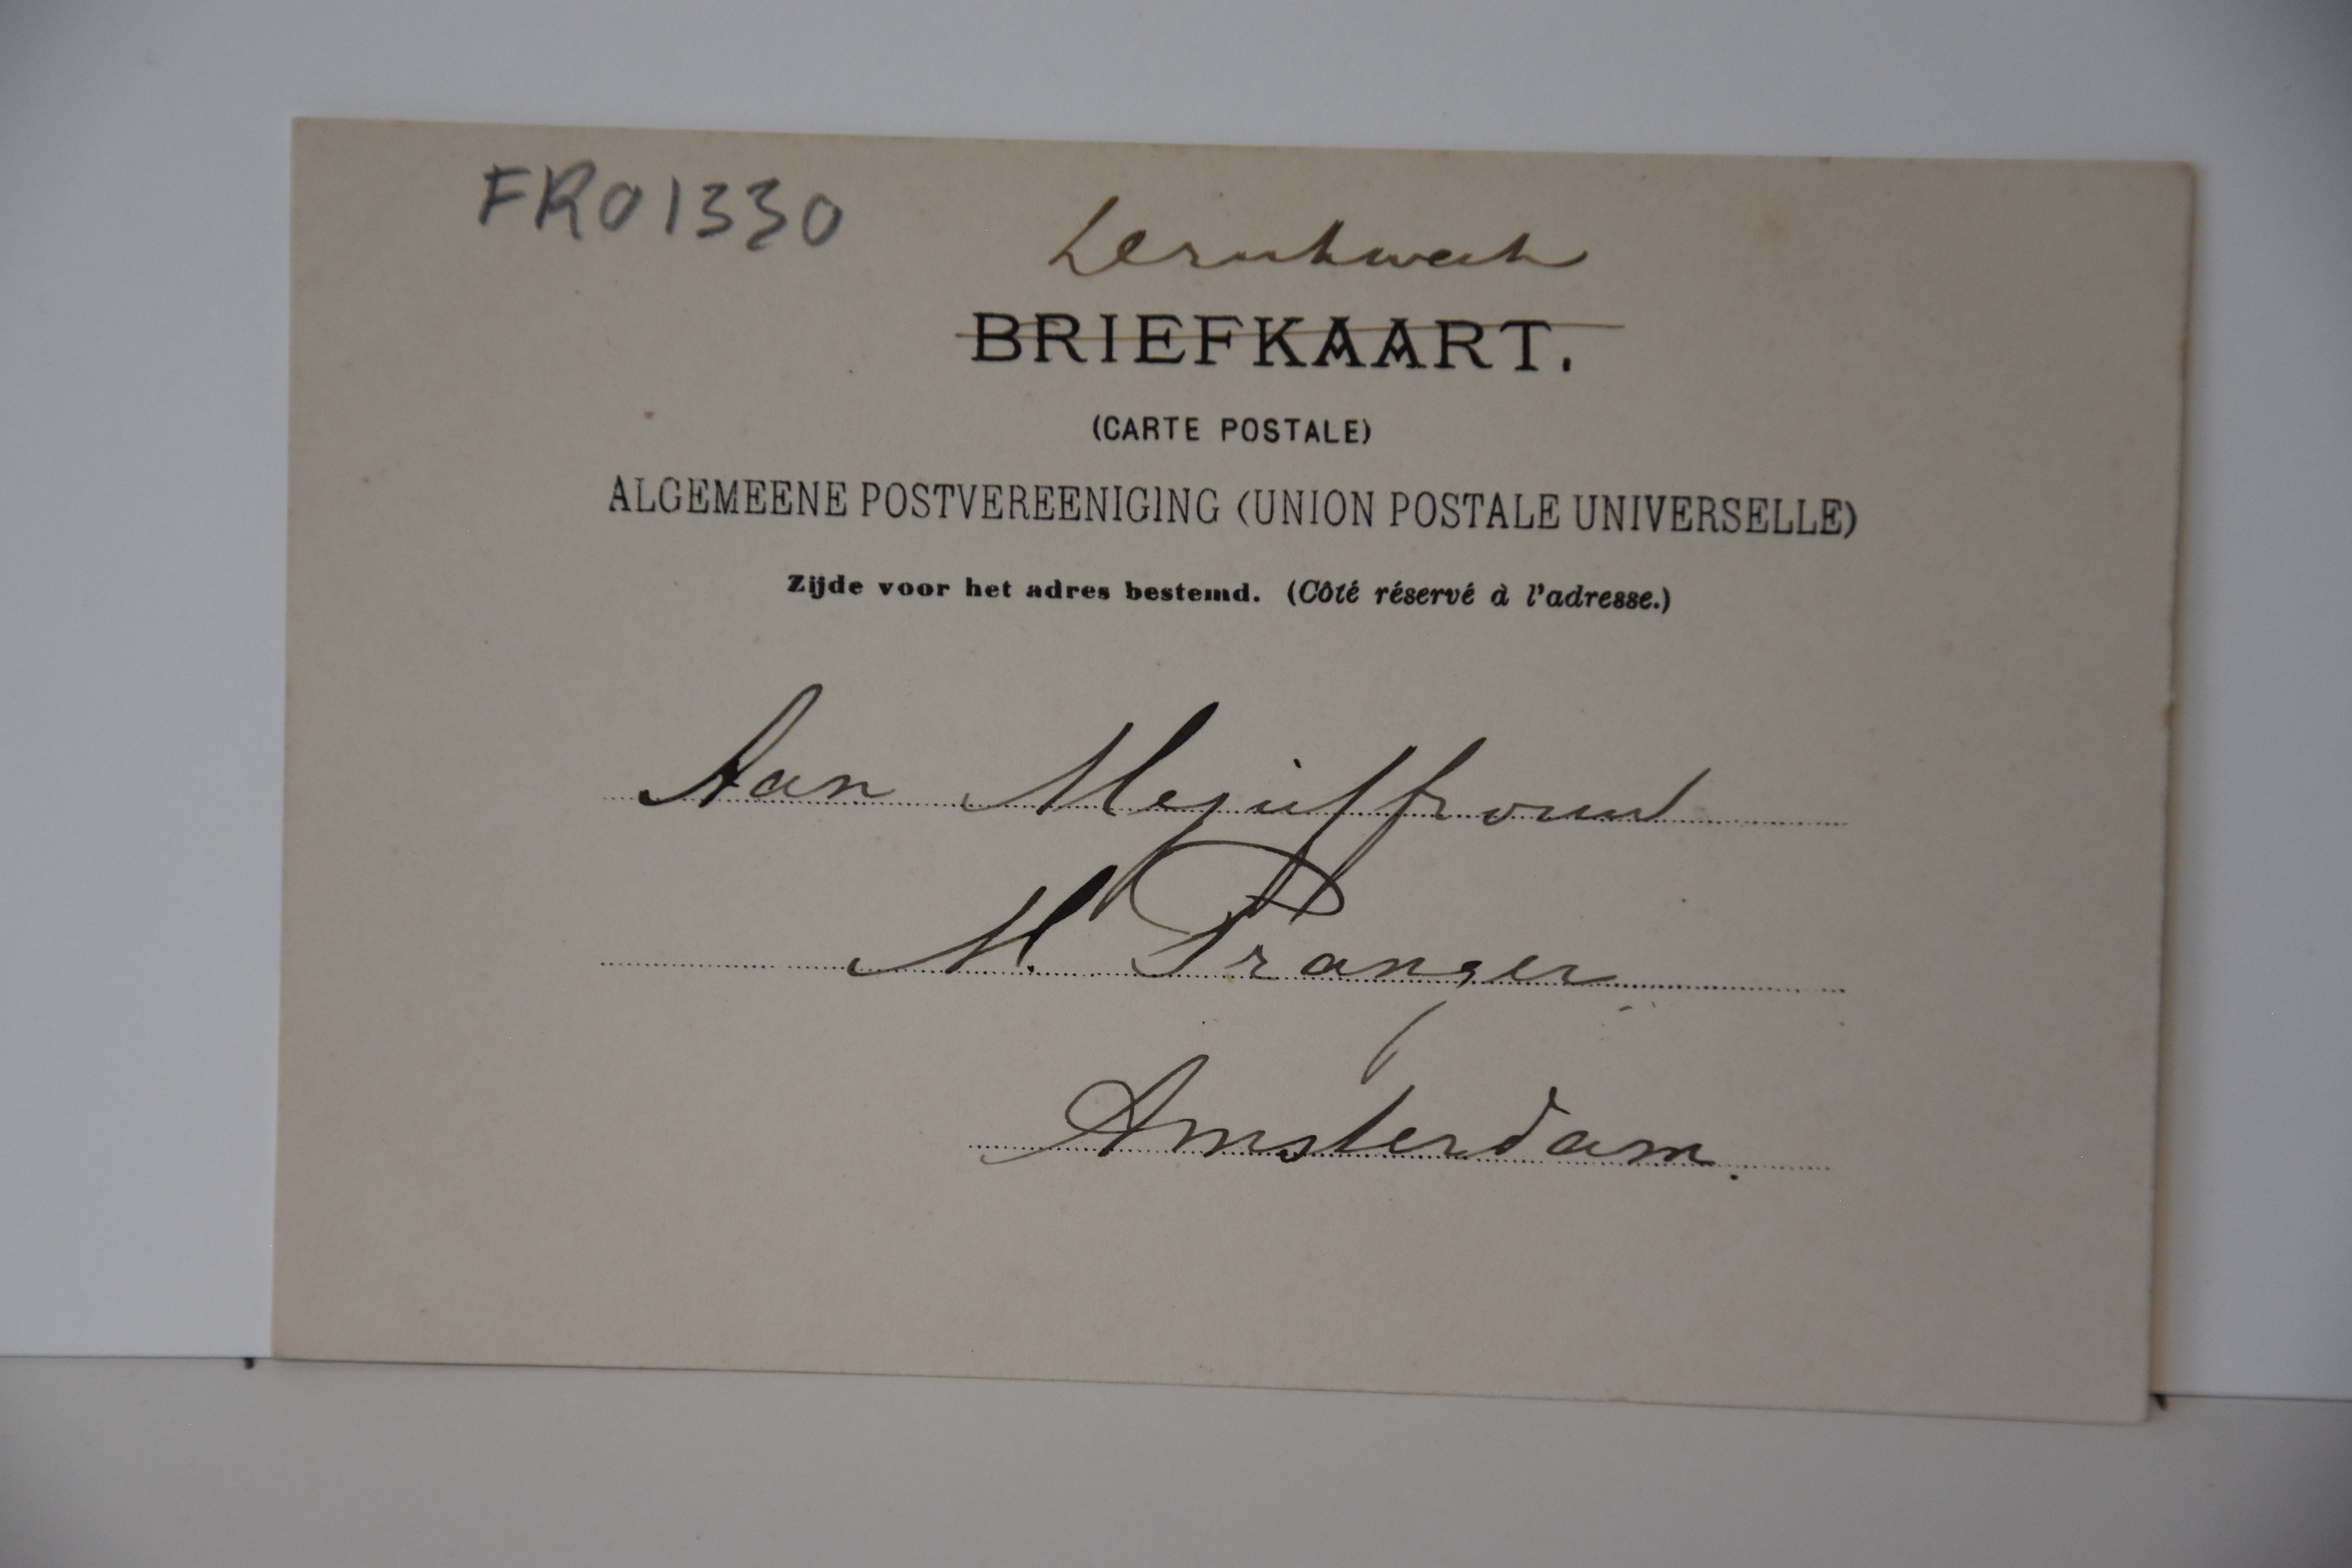 FR01330
BRIEFKAART.
(CARTE POSTALE)
ALGEMEENE POSTVEREENIGING (UNION POSTALE UNIVERSELLE)
Zijde voor het adres bestemd. (Côté réservé à l'adresse.)
Aan Mejuffrouw
M. Pranger
Amsterdam.